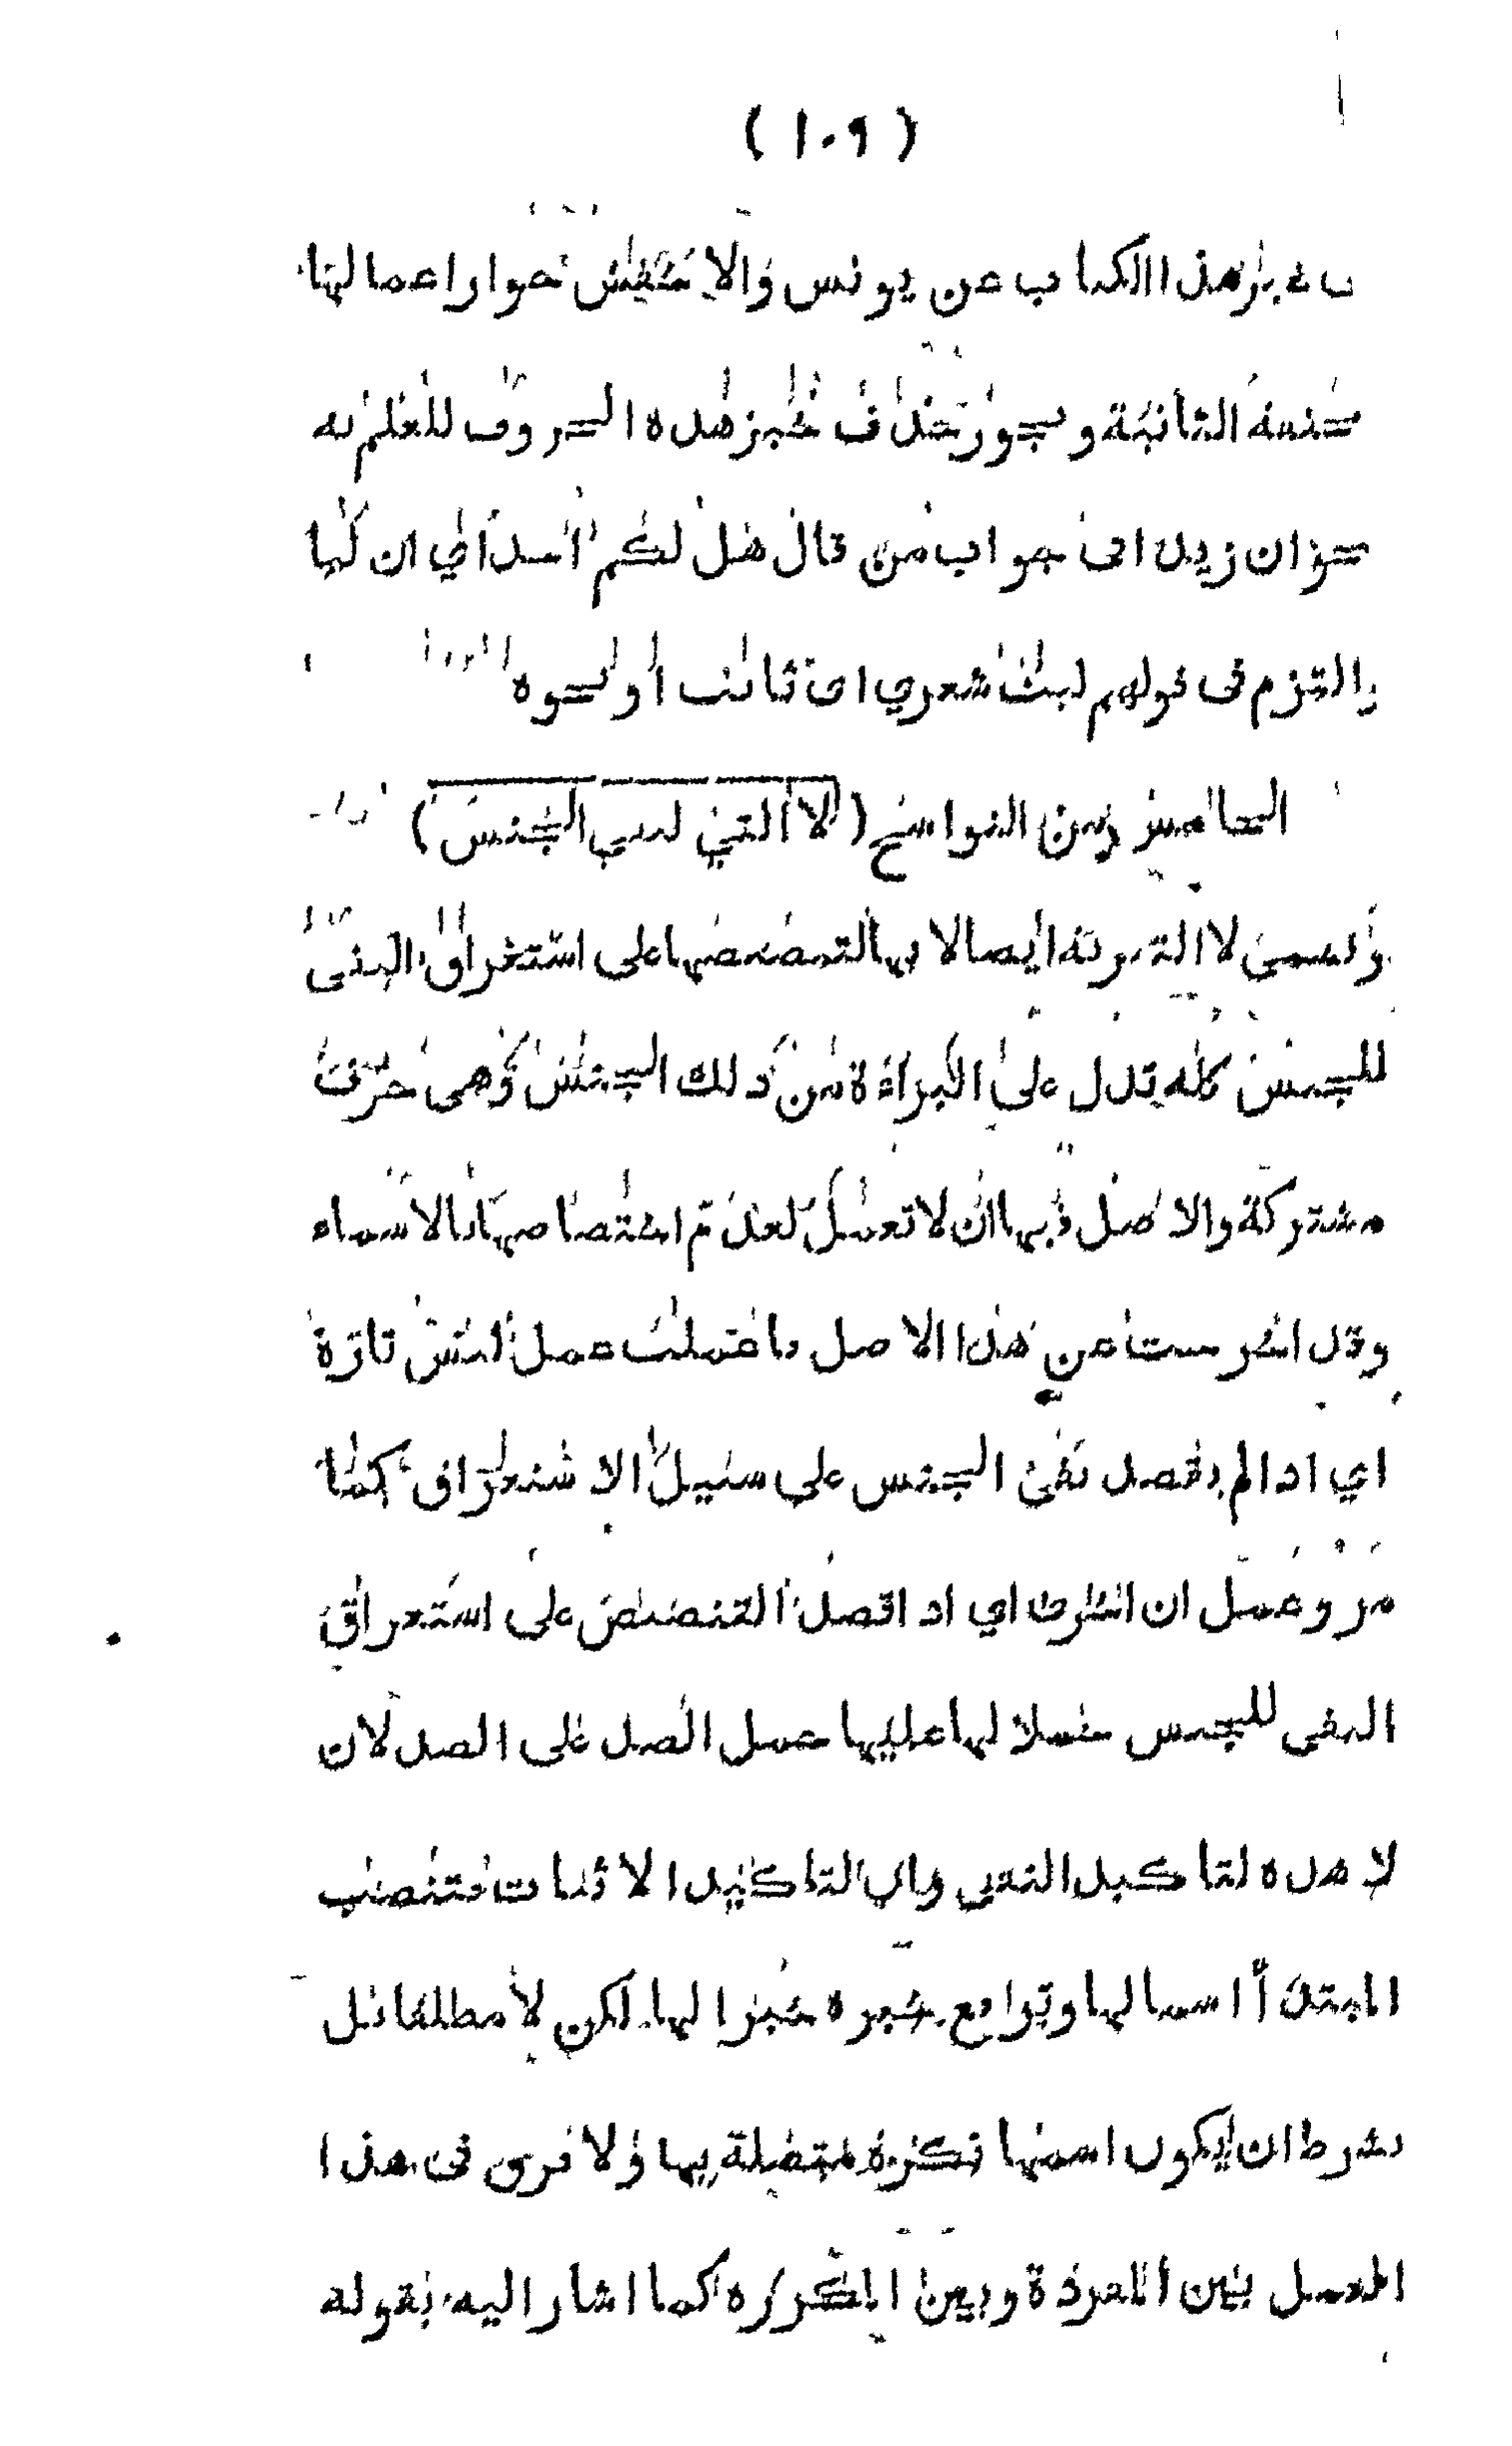 (١٠٩)
هذا الكتاب عن يونس والاخفش جواز اعمالها
الثانية ويجوز حذف خبر هذه الحروف للعلم به
نحو ان زيدا في جواب من قال هل لكم احد اي ان لنا
والتزم في قولهم ليت شعري اي ثابت او نحوه
الخامس من النواسخ (لا التي لنفي الجنس)
وتسمى لا التبرئة ايضا لا بها لتنصيصها على استغراق النفي
للجنس كله تدل على البراءة من ذلك الجنس وهي حرف
مشتركة والاصل فيها ان لا تعمل لعدم اختصاصها بالاسماء
وقد اخرجت عن هذا الاصل فاعملت عمل ليس تارة
اي اذا لم يقصد نفي الجنس على سبيل الاستغراق كما
مر وعمل ان اخرى اي اذا قصد التنصيص على استغراق
النفي للجنس حملا لها عليها حمل الضد على الضد لان
لا هذه لتاكيد النفي وان لتاكيد الاثبات فتنصب
المبتدأ اسما لها وترفع خبره خبرا لها لكن لا مطلقا بل
بشرط ان يكون اسمها نكرة متصلة بها ولا فرق في هذا
العمل بين المفردة وبين المكررة كما اشار اليه بقوله